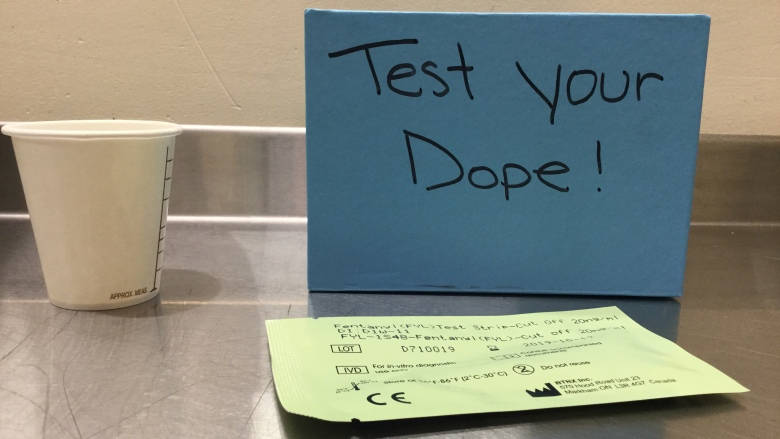 Test your
Dope!
APPROX. MEAS.
Fentanyl(FYL)Test Strip-Cut Off 20ng/ml
DI DIW-11
FYL-1S48-Fentanyl(FYL)-Cut off 20ng/ml
LOT D710019
IVD For in-vitro diagnostic
use only
86°F(2°C-30°C) 2 Do not reuse
CE
BTNX Inc.
570 Hood Road Unit 23
Markham ON L3R 4G7 Canada